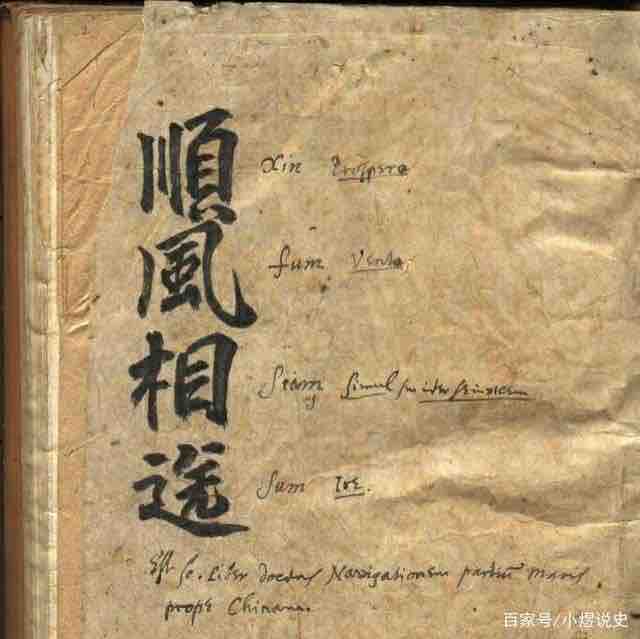 順風相送
Xin Prospero
fum Vento,
Siam Simul
Sum Ire.
Est sc. Liber docens Navigationem partiū Maris
prope Chinam.
百家号/小熠说史